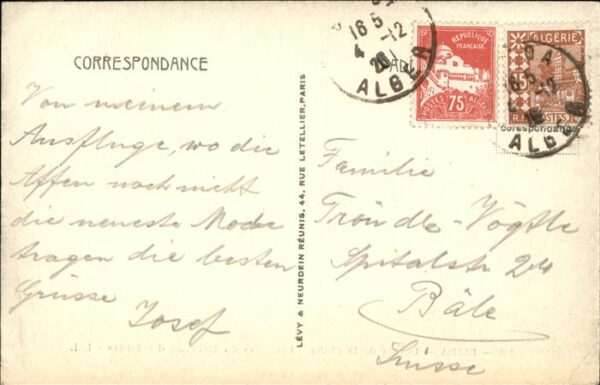 CORRESPONDANCE
Von meinem
Ausfluge, wo die
Affen noch nicht
die neueste Mode
tragen die besten
Grüsse
Josef
LÉVY & NEURDEIN RÉUNIS, 44, RUE LETELLIER, PARIS
16 5
4 -12
26
ALGER
REPUBLIQUE
FRANÇAISE
POSTES ALGÉRIE
75
ALGÉRIE
R.F. POSTES
correspondance
ALGER
Familie
Tröndle-Vögtle
Spitalstr 24
Bâle
Suisse